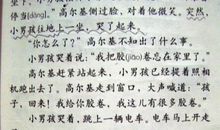 停当[dàng]。高尔基侧过脸，对着他微笑。突然，
小男孩往地上一坐，哭了起来。
“你怎么了？”高尔基不知出了什么事。
小男孩哭着说：“我把胶(jiāo)卷忘在家里了。”
高尔基赶紧站起来，小男孩已经提着照相
机跑出去了。高尔基走到窗口，大声喊道：“孩
子，回来！我给你胶卷，我这儿有很多胶卷。”
小男孩哭着，跳上一辆电车。电车马上开走